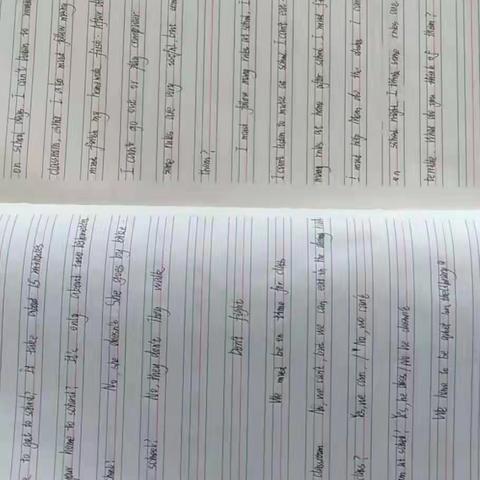 on school days. I can't listen to music
classroom, either. I also must follow many
must finish my homework first. After
I can't go out or play computer
some rules are very useful, but some
them?
I must follow many rules at school. I
I can't listen to music at school. I can't eat
many rules at home after school. I must
I must help them do the dishes. I can
on school night. I think some rules are
terrible. What do you think of them?
to get to school? It take about 15 minutes
your home to school? It's only about two kilometers
No, she doesn't. She goes by bike.
school? No, they don't. They walk.
Don't fight
We must be on time for class
classroom No, we can't, but we can eat in the dining hall
class? Yes, we can. / No, we can't
at school? Yes, he does/ No he doesn't
We have to be quiet in the library?